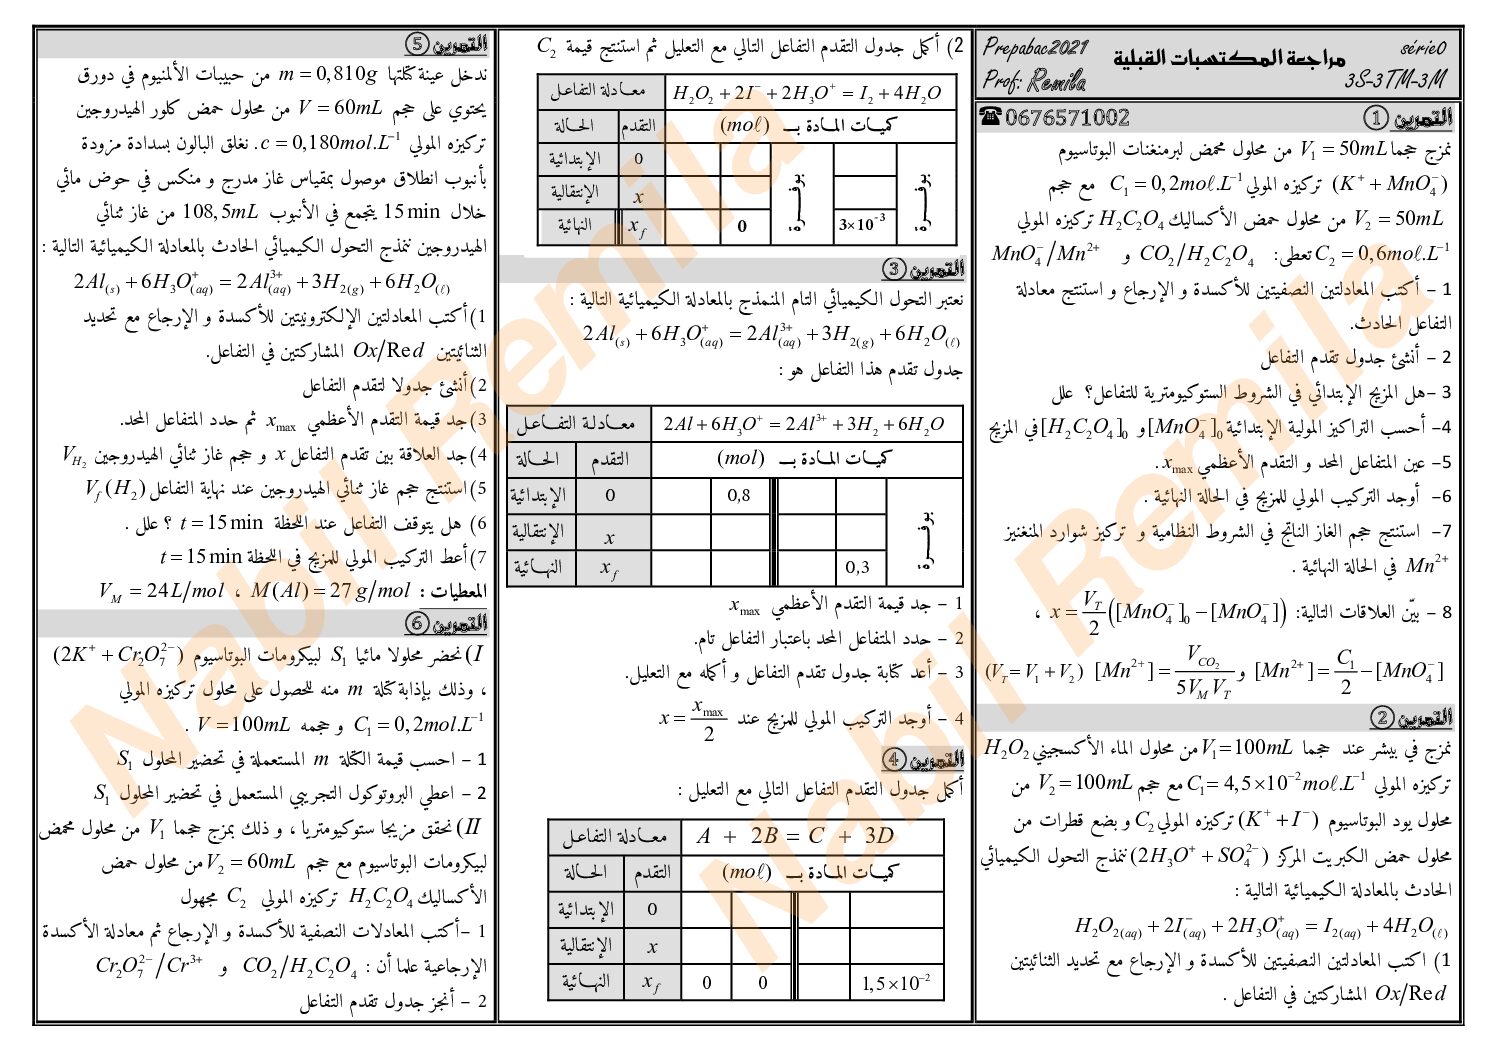 Prepabac2021
مراجعة المكتسبات القبلية
série0
Prof: Remila
3S-3TM-3M
التمرين ①
☎0676571002
نمزج حجما V₁ = 50mL من محلول محمض لبرمنغنات البوتاسيوم
(K⁺ + MnO₄⁻) تركيزه المولي C₁ = 0,2moℓ.L⁻¹ مع حجم
V₂ = 50mL من محلول حمض الأكساليك H₂C₂O₄ تركيزه المولي
C₂ = 0,6moℓ.L⁻¹ تعطى: CO₂/H₂C₂O₄ و MnO₄⁻/Mn²⁺
1 – أكتب المعادلتين النصفيتين للأكسدة و الإرجاع و استنتج معادلة
التفاعل الحادث.
2 – أنشئ جدول تقدم التفاعل
3 –هل المزيج الإبتدائي في الشروط الستوكيومترية للتفاعل؟ علل
4– أحسب التراكيز المولية الإبتدائية [MnO₄⁻]₀ و [H₂C₂O₄]₀ في المزيج
5– عين المتفاعل المحد و التقدم الأعظمي xmax.
6– أوجد التركيب المولي للمزيج في الحالة النهائية .
7– استنتج حجم الغاز الناتج في الشروط النظامية و تركيز شوارد المنغنيز
Mn²⁺ في الحالة النهائية .
8 – بيّن العلاقات التالية: x = V_T/2 ([MnO₄⁻]₀ – [MnO₄⁻]) ،
[Mn²⁺] = C₁/2 – [MnO₄⁻] و [Mn²⁺] = V_CO₂/5V_M V_T (V_T = V₁ + V₂)
التمرين ②
نمزج في بيشر عند حجما V₁=100mL من محلول الماء الأكسجيني H₂O₂
تركيزه المولي C₁= 4,5×10⁻²moℓ.L⁻¹ مع حجم V₂=100mL من
محلول يود البوتاسيوم (K⁺ + I⁻) تركيزه المولي C₂ و بضع قطرات من
محلول حمض الكبريت المركز (2H₃O⁺ + SO₄²⁻) نمذج التحول الكيميائي
الحادث بالمعادلة الكيميائية التالية :
H₂O₂(aq) + 2I⁻(aq) + 2H₃O⁺(aq) = I₂(aq) + 4H₂O(ℓ)
1) اكتب المعادلتين النصفيتين للأكسدة و الإرجاع مع تحديد الثنائيتين
Ox/Red المشاركتين في التفاعل .
2) أكمل جدول التقدم التفاعل التالي مع التعليل ثم استنتج قيمة C₂
معادلة التفاعل H₂O₂ + 2I⁻ + 2H₃O⁺ = I₂ + 4H₂O
الحالة التقدم كميات المادة بـ (moℓ)
الإبتدائية 0 بوفرة بوفرة
الإنتقالية x
النهائية x_f 0 3×10⁻³
التمرين ③
نعتبر التحول الكيميائي التام المنمذج بالمعادلة الكيميائية التالية :
2Al(s) + 6H₃O⁺(aq) = 2Al³⁺(aq) + 3H₂(g) + 6H₂O(ℓ)
جدول تقدم هذا التفاعل هو :
معادلة التفاعل 2Al + 6H₃O⁺ = 2Al³⁺ + 3H₂ + 6H₂O
الحالة التقدم كميات المادة بـ (mol)
الإبتدائية 0 0,8 بوفرة
الإنتقالية x
النهائية x_f 0,3
1 – جد قيمة التقدم الأعظمي xmax
2 – حدد المتفاعل المحد باعتبار التفاعل تام.
3 – أعد كتابة جدول تقدم التفاعل و أكمله مع التعليل.
4 – أوجد التركيب المولي للمزيج عند x = xmax/2
التمرين ④
أكمل جدول التقدم التفاعل التالي مع التعليل :
معادلة التفاعل A + 2B = C + 3D
الحالة التقدم كميات المادة بـ (moℓ)
الإبتدائية 0
الإنتقالية x
النهائية x_f 0 0 1,5×10⁻²
التمرين ⑤
ندخل عينة كتلتها m = 0,810g من حبيبات الألمنيوم في دورق
يحتوي على حجم V = 60mL من محلول حمض كلور الهيدروجين
تركيزه المولي c = 0,180mol.L⁻¹. نغلق البالون بسدادة مزودة
بأنبوب انطلاق موصول بمقياس غاز مدرج و منكس في حوض مائي
خلال 15min يتجمع في الأنبوب 108,5mL من غاز ثنائي
الهيدروجين ننمذج التحول الكيميائي الحادث بالمعادلة الكيميائية التالية :
2Al(s) + 6H₃O⁺(aq) = 2Al³⁺(aq) + 3H₂(g) + 6H₂O(ℓ)
1)أكتب المعادلتين الإلكترونيتين للأكسدة و الإرجاع مع تحديد
الثنائيتين Ox/Red المشاركتين في التفاعل.
2)أنشئ جدولا لتقدم التفاعل
3)جد قيمة التقدم الأعظمي xmax ثم حدد المتفاعل المحد.
4)جد العلاقة بين تقدم التفاعل x و حجم غاز ثنائي الهيدروجين V_H₂
5)استنتج حجم غاز ثنائي الهيدروجين عند نهاية التفاعل V_f(H₂)
6) هل يتوقف التفاعل عند اللحظة t = 15min ؟ علل .
7)أعط التركيب المولي للمزيج في اللحظة t = 15min
المعطيات : M(Al) = 27g/mol ، V_M = 24L/mol
التمرين ⑥
I)نحضر محلولا مائيا S₁ لبيكرومات البوتاسيوم (2K⁺ + Cr₂O₇²⁻)
، وذلك بإذابة كتلة m منه للحصول على محلول تركيزه المولي
C₁ = 0,2mol.L⁻¹ و حجمه V = 100mL .
1 – احسب قيمة الكتلة m المستعملة في تحضير المحلول S₁
2 – اعطي البروتوكول التجريبي المستعمل في تحضير المحلول S₁
II)نحقق مزيجا ستوكيومتريا ، و ذلك بمزج حجما V₁ من محلول محمض
لبيكرومات البوتاسيوم مع حجم V₂ = 60mL من محلول حمض
الأكساليك H₂C₂O₄ تركيزه المولي C₂ مجهول
1 –أكتب المعادلات النصفية للأكسدة و الإرجاع ثم معادلة الأكسدة
الإرجاعية علما أن : CO₂/H₂C₂O₄ و Cr₂O₇²⁻/Cr³⁺
2 – أنجز جدول تقدم التفاعل
Nabil Remila
Nabil Remila